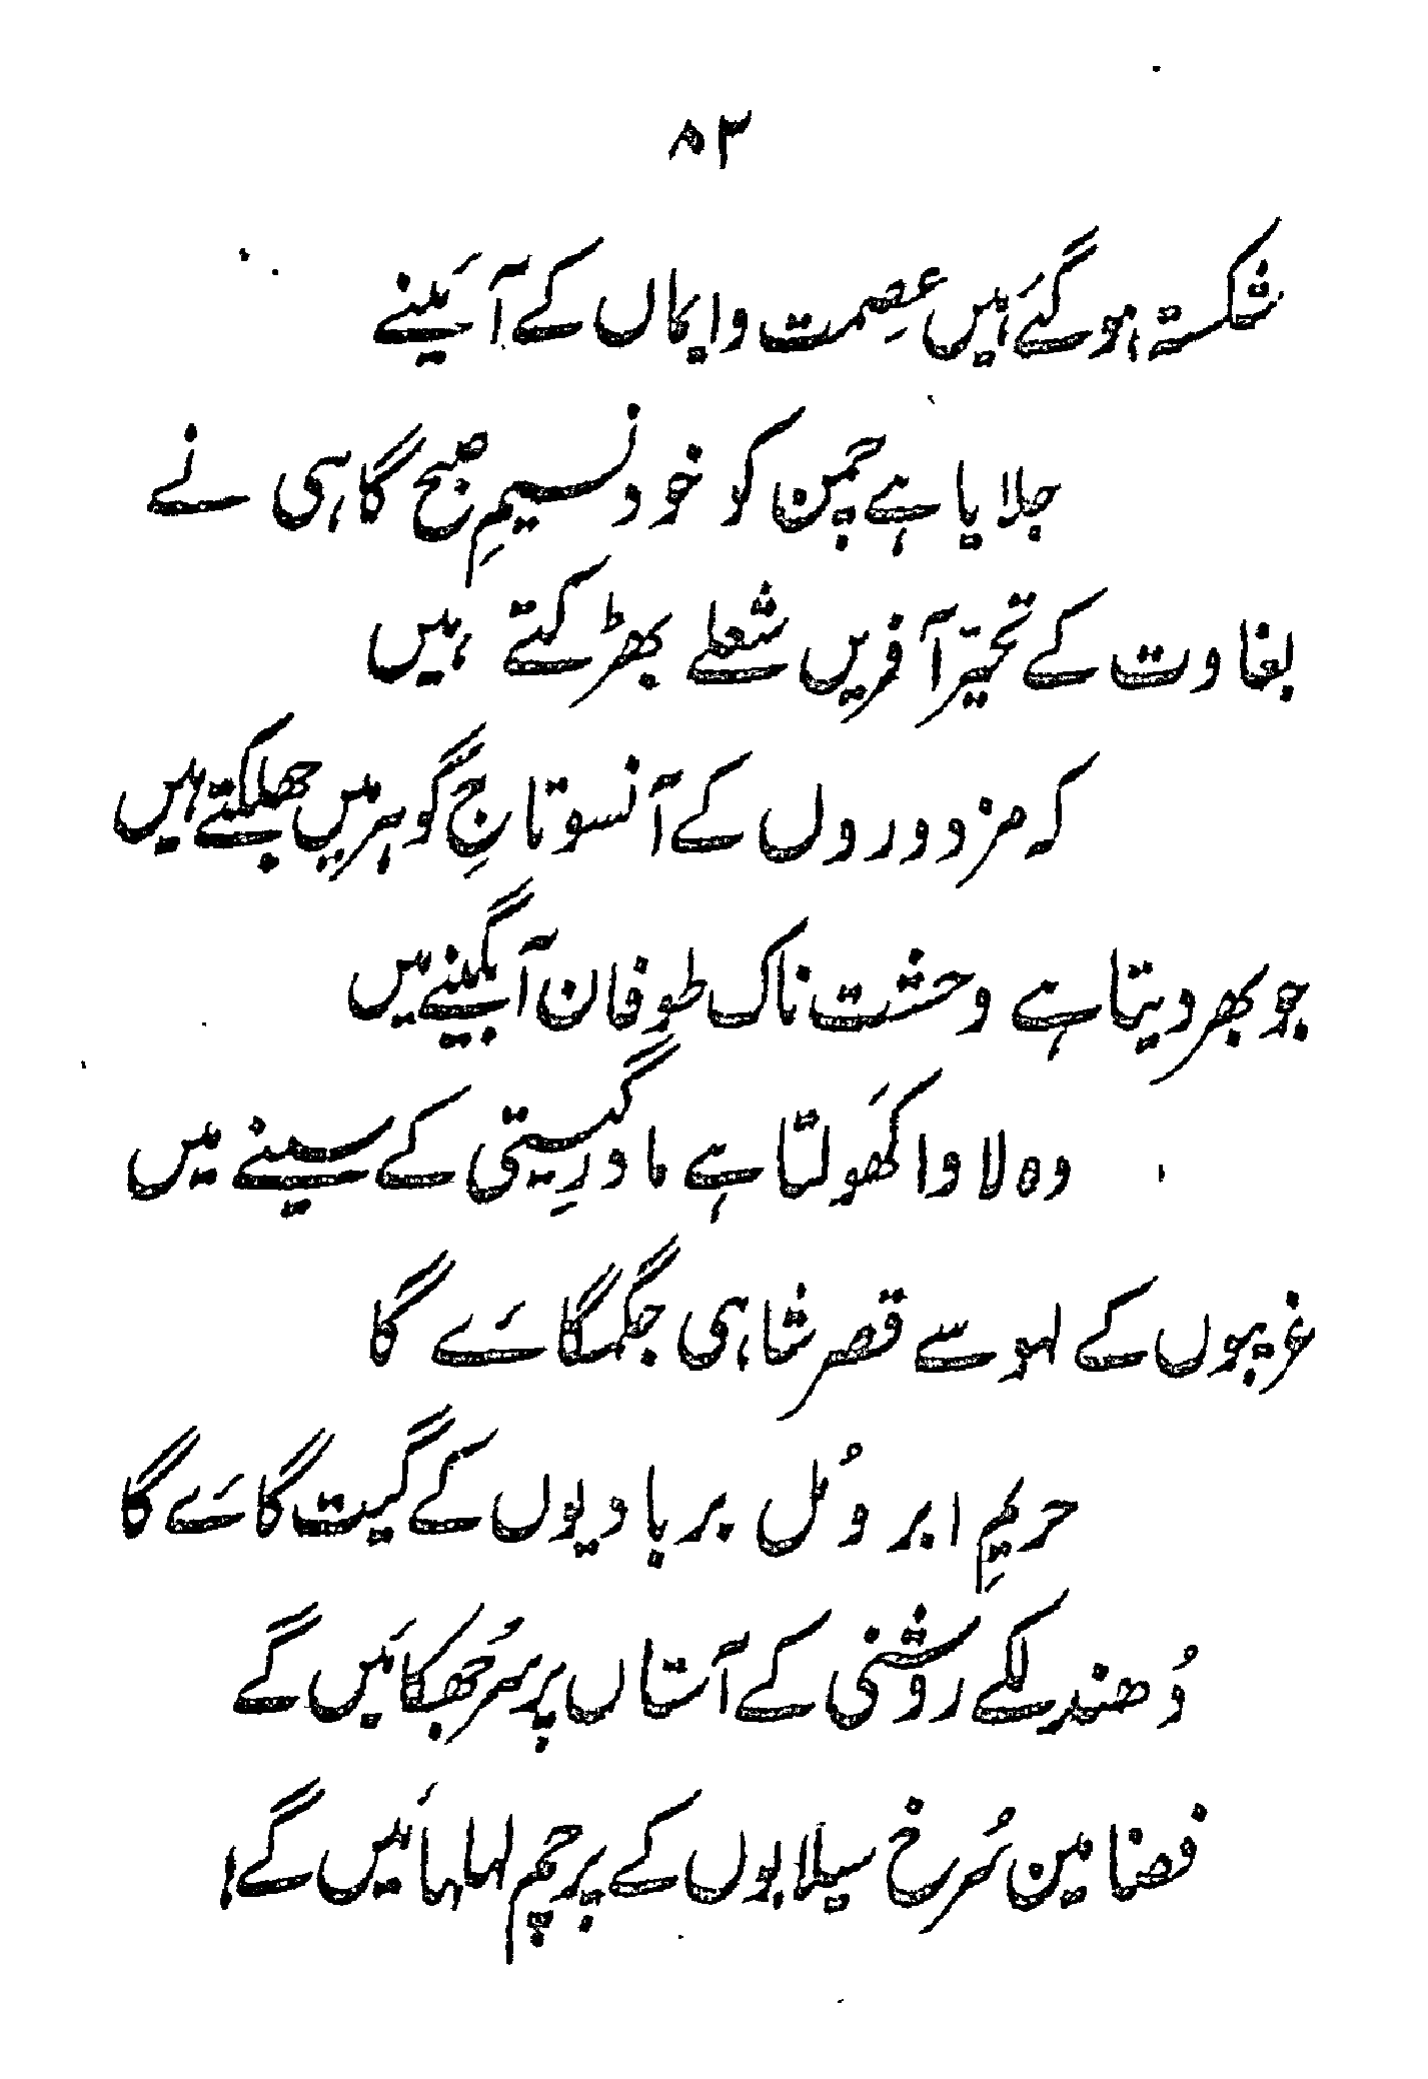 ۸۳
شکستہ ہو گئے ہیں عِصمت و ایماں کے آئینے
جلایا ہے چمن کو خود نسیمِ صبح گاہی نے
بغاوت کے تحیّر آفریں شعلے بھڑکتے ہیں
کہ مزدوروں کے آنسو تاجِ گوہر میں جھلکتے ہیں
جو بھر دیتا ہے وحشت ناک طوفان آبگینے میں
وہ لاوا کھَولتا ہے مادرِ گیتی کے سینے میں
غریبوں کے لہو سے قصر شاہی جگمگائے گا
حریمِ ابر و گُل بربادیوں کے گیت گائے گا
دُھندلکے روشنی کے آستاں پر سر جُھکائیں گے
فضا میں سُرخ سیلابوں کے پرچم لہلہائیں گے!